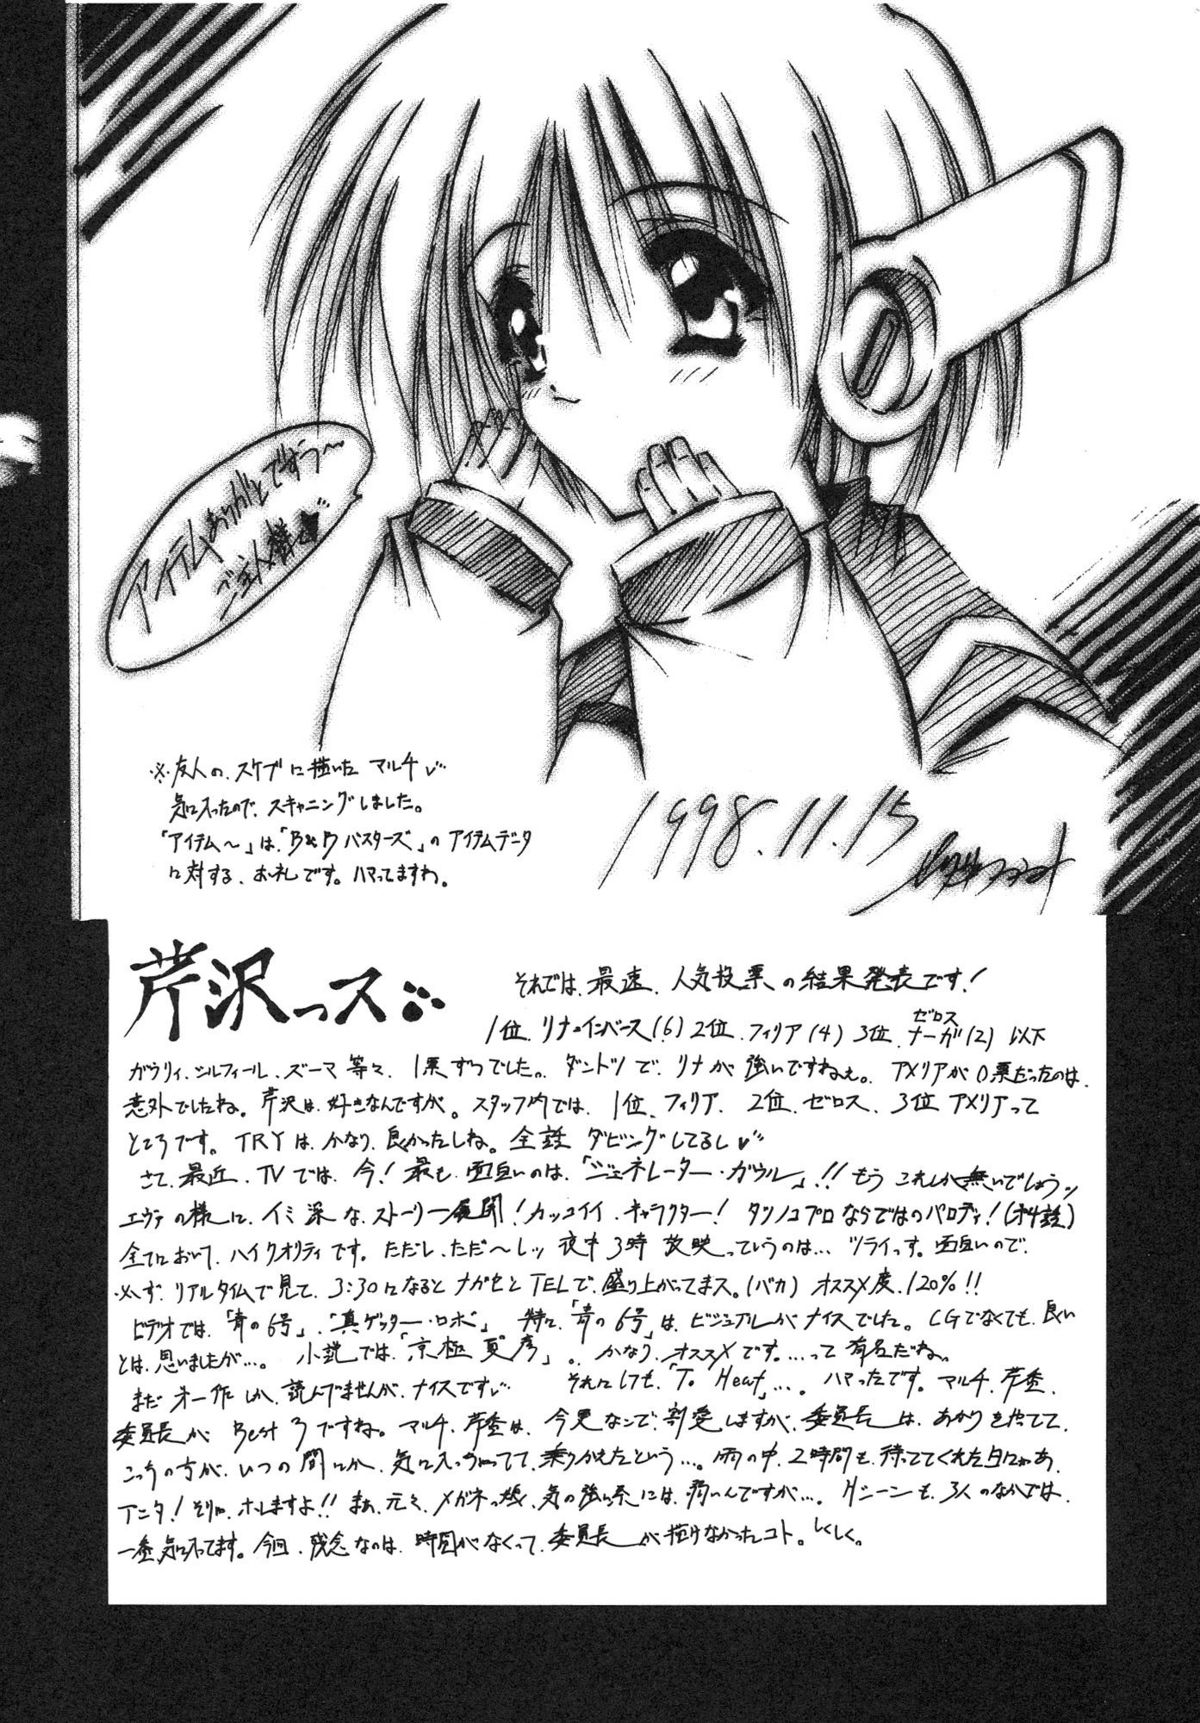 アイテムありがとですう～
ご主人様
※友人の、スケブに描いた マルチ
気に入ったので、スキャニングしました。
「アイテム～」は、「B&Bバスターズ」の アイテムデータ
に対する、お礼です。ハマってますわ。
1998.11.15
芹沢っス
それでは、最速、人気投票の結果発表です!
1位、リナ=インバース(6) 2位、フィリア(4) 3位、ゼロス ナーガ(2) 以下
ガウリィ、シルフィール、ズーマ 等々、1票ずつでした。ダントツで、リナが強いですねぇ。アメリアが0票だったのは、
意外でしたね。芹沢は、好きなんですが。スタッフ内では、1位、フィリア、2位、ゼロス、3位 アメリアって
ところです。TRYは、かなり、良かったしね。全話 ダビングしてるし
さて、最近、TVでは、今!最も、面白いのは、「ジェネレーター・ガウル」!!もう これしか無いでしょうッ
エヴァの様に、イミ深な、ストーリー展開!カッコイイ、キャラクター!タツノコプロならではのパロディ!(オ4話)
全てにおいて、ハイクオリティです。ただし、ただ～しッ 夜中3時 放映っていうのは… ツライっす。面白いので、
必ず、リアルタイムで見て、3:30になると ナガセとTELで、盛り上がってまス。(バカ) オススメ度、120%!!
ビデオでは、「青の6号」、「真ゲッター・ロボ」 特に、「青の6号」は、ビジュアルがナイスでした。CGでなくても、良い
とは、思いましたが…。小説では、「京極 夏彦」。かなり、オススメです。…って 有名だね。
まだ オ一作しか、読んでませんが、ナイスです それにしても、「To Heat」…。ハマったです。マルチ、芹香、
委員長が Best 3ですね。マルチ、芹香は、今更なんで、割愛しますが、委員長は、あかりを捨てて、
こっちの方が、いつの間にか、気に入っちゃってて、乗りかえたという…。雨の中、2時間も、待っててくれた日にゃあ、
アニタ!そりゃ、ホレますよ!!まあ、元々、メガネっ娘、気の強い系には、弱いんですが…。Hシーンも、3人のなかでは、
一番気に入ってます。今回、残念なのは、時間がなくって、委員長が描けなかったコト。しくしく。